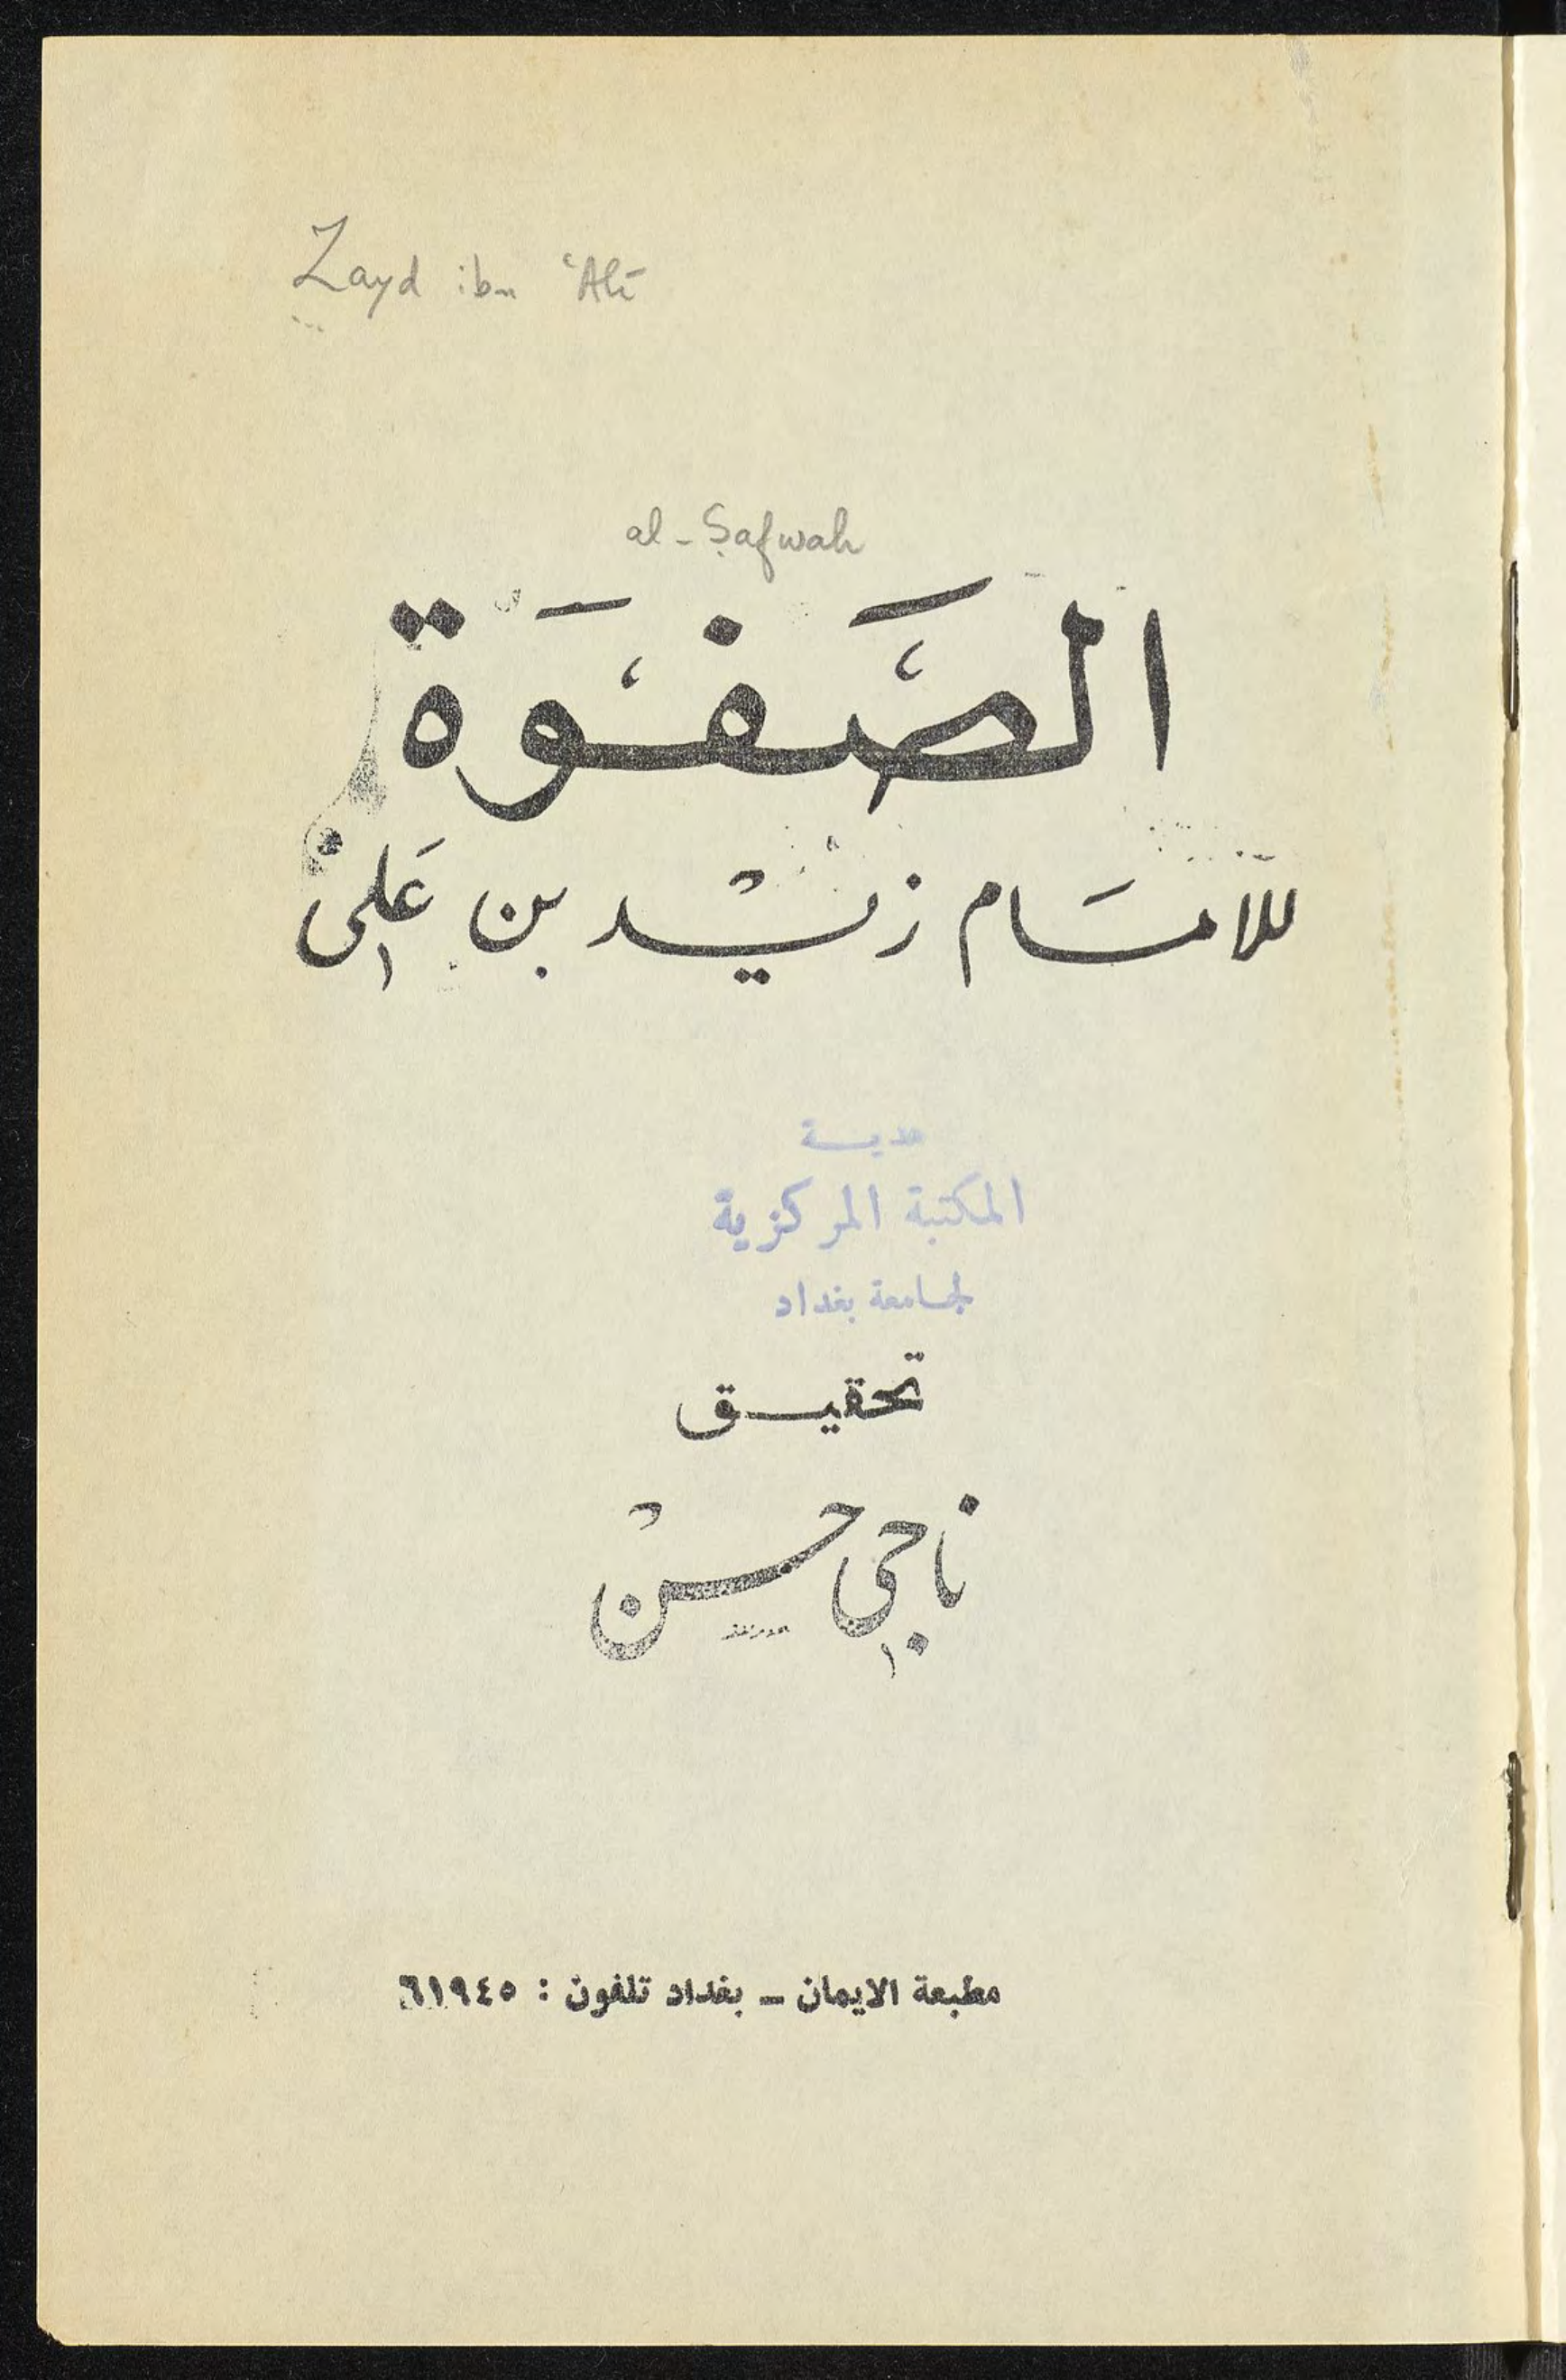 Zayd ibn ʿAlī
al-Ṣafwah
الصَّفْوَة
للامَام زيْد بن عَلي
هديـــة
المكتبة المركزية
لجامعة بغداد
تحقيــق
ناجي حسْن
مطبعة الايمان – بغداد تلفون : ٦١٩٤٥